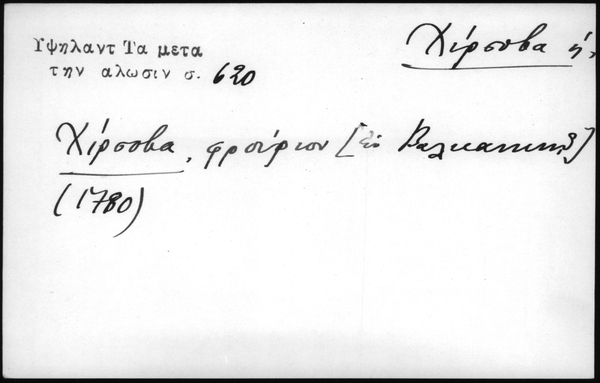 Χίρσοβα ἡ.
Υψηλαντ Τα μετα
την αλωσιν σ. 620
Χίρσοβα, φρούριον [ἐν Βαλκανικῇ]
(1780)